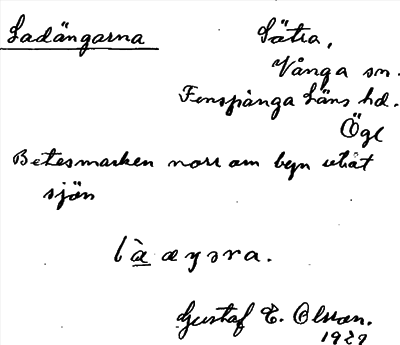 Ladängarna
Sätra,
Vånga sn.
Finspånga Läns hd.
Ögl
Betesmarken norr om byn utåt
sjön
Gustaf E. Olsson.
1929